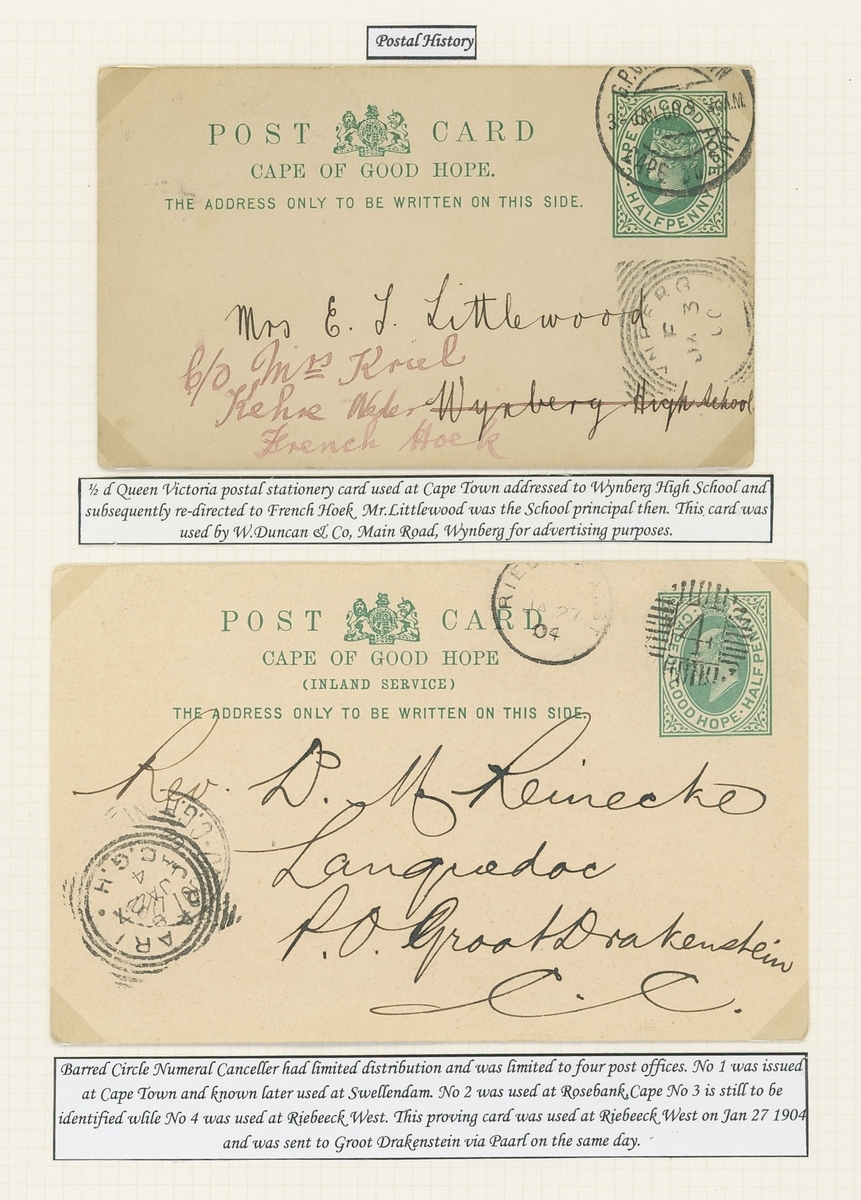 Postal History
POST CARD
CAPE OF GOOD HOPE.
THE ADDRESS ONLY TO BE WRITTEN ON THIS SIDE.
CAPE OF GOOD HOPE
HALFPENNY
3
JA 3
00
Mrs E. J. Littlewood
c/o Mrs Kriel
Wynberg High School
French Hoek
½ d Queen Victoria postal stationery card used at Cape Town addressed to Wynberg High School and
subsequently re-directed to French Hoek Mr.Littlewood was the School principal then. This card was
used by W.Duncan & Co, Main Road, Wynberg for advertising purposes.
POST CARD
CAPE OF GOOD HOPE
(INLAND SERVICE)
THE ADDRESS ONLY TO BE WRITTEN ON THIS SIDE.
JA 27
04
CAPE OF GOOD HOPE · HALFPENNY
Rev. D. M. Reinecke
Languedoc
P.O. Groot Drakenstein
C. C.
Barred Circle Numeral Canceller had limited distribution and was limited to four post offices. No 1 was issued
at Cape Town and known later used at Swellendam. No 2 was used at Rosebank,Cape No 3 is still to be
identified wlile No 4 was used at Riebeeck West. This proving card was used at Riebeeck West on Jan 27 1904
and was sent to Groot Drakenstein via Paarl on the same day.